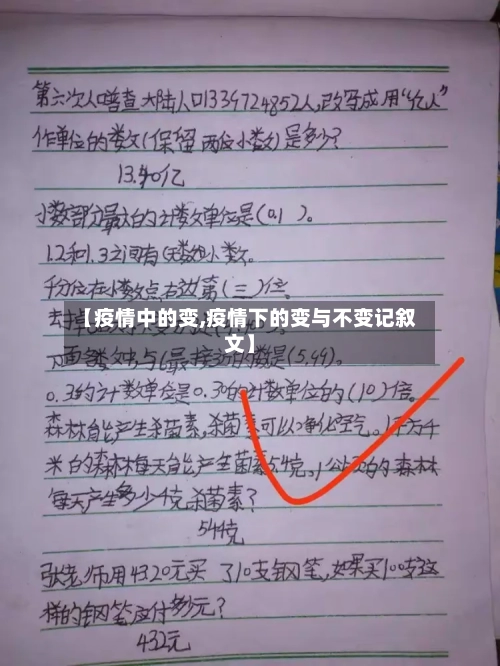 第六次人口普查大陆人口1339724852人,改写成用“亿人”
作单位的数又(保留两位小数)是多少?
13.40亿
小数部分最大的计数单位是(0.1)。
1.2和1.3之间有(无数)个小数。
千分位在小数点右边第(三)位。
去掉
【疫情中的变,疫情下的变与不变记叙
文】
下面各数中与6最接近的数是(5.99)。
0.3的计数单位是0.30的计数单位的(10)倍。
森林能产生杀菌素,杀菌素可以净化空气。1平方千
米的森林每天能产生菌素5.4克。1公顷的森林
每天产生多少克杀菌素?
544克
张老师用4320元买了10支钢笔,如果买100支这
样的钢笔应付多少元?
432元